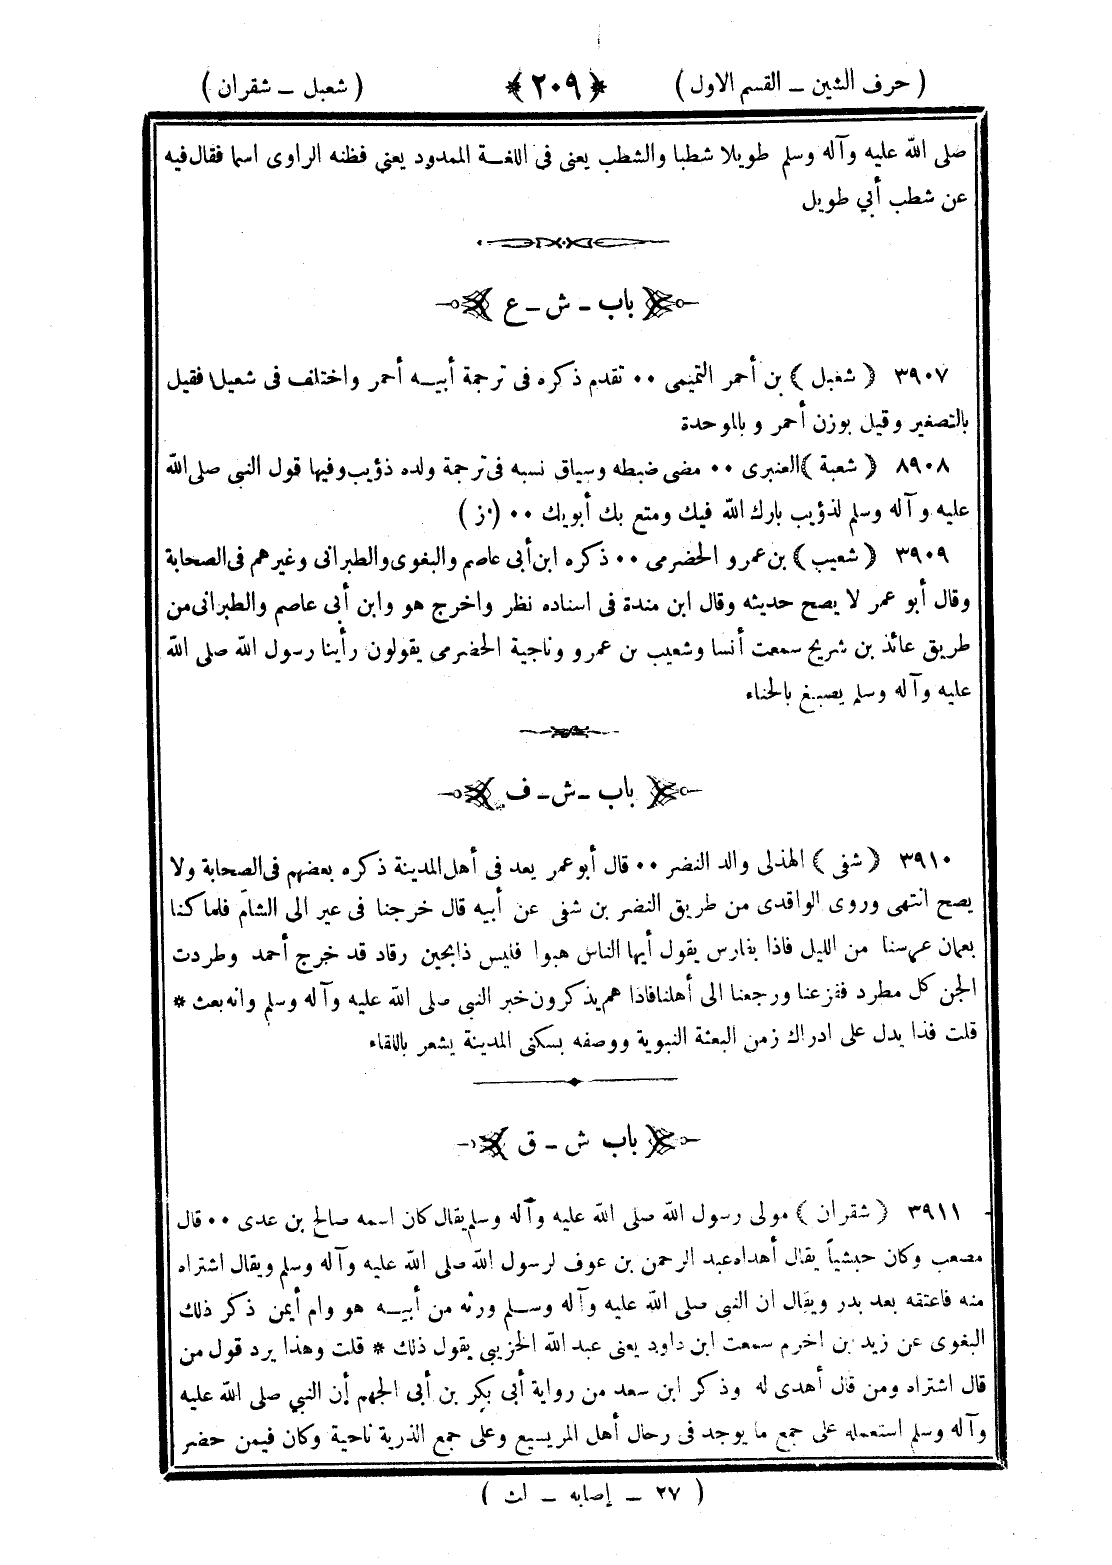 ( حرف الشين – القسم الاول ) ﴿ ٢٠٩ ﴾ ( شعبل – شقران )
صلى الله عليه وآله وسلم طويلا شطبا والشطب يعنى فى اللغة الممدود يعني فظنه الراوى اسما فقال فيه
عن شطب أبي طويل
باب – ش – ع
٣٩٠٧ ﴿ شعبل ﴾ بن أحمر التميمى ٠٠ تقدم ذكره فى ترجمة أبيه أحمر واختلف فى شعيل فقيل
بالتصغير وقيل بوزن أحمر و بالموحدة
٨٩٠٨ ﴿ شعبة ﴾ العنبرى ٠٠ مضى ضبطه وسياق نسبه فى ترجمة ولده ذؤيب وفيها قول النبى صلى الله
عليه وآله وسلم لذؤيب بارك الله فيك ومتع بك أبويك ٠٠ ( ز )
٣٩٠٩ ﴿ شعيب ﴾ بن عمرو الحضرمى ٠٠ ذكره ابن أبى عاصم والبغوى والطبرانى وغيرهم فى الصحابة
وقال أبو عمر لا يصح حديثه وقال ابن مندة فى اسناده نظر واخرج هو وابن أبى عاصم والطبرانى من
طريق عائذ بن شريح سمعت أنسا وشعيب بن عمرو وناجية الحضرمى يقولون رأينا رسول الله صلى الله
عليه وآله وسلم يصبغ بالحناء
باب – ش – ف
٣٩١٠ ﴿ شفى ﴾ الهذلى والد النضر ٠٠ قال أبو عمر يعد فى أهل المدينة ذكره بعضهم فى الصحابة ولا
يصح انتهى وروى الواقدى من طريق النضر بن شفى عن أبيه قال خرجنا فى عير الى الشام فلما كنا
بعمان عرسنا من الليل فاذا بفارس يقول أيها الناس هبوا فليس ذابحين رقاد قد خرج أحمد وطردت
الجن كل مطرد ففزعنا ورجعنا الى أهلنا فاذا هم يذكرون خبر النبى صلى الله عليه وآله وسلم وانه بعث *
قلت فذا يدل على ادراك زمن البعثة النبوية ووصفه بسكنى المدينة يشعر باللقاء
باب ش – ق
٣٩١١ ﴿ شقران ﴾ مولى رسول الله صلى الله عليه وآله وسلم يقال كان اسمه صالح بن عدى ٠٠ قال
مصعب وكان حبشياً يقال أهداه عبد الرحمن بن عوف لرسول الله صلى الله عليه وآله وسلم ويقال اشتراه
منه فاعتقه بعد بدر ويقال ان النبى صلى الله عليه وآله وسلم ورثه من أبيه هو وام أيمن ذكر ذلك
البغوى عن زيد بن اخرم سمعت ابن داود يعنى عبد الله الخزيبى يقول ذلك * قلت وهذا يرد قول من
قال اشتراه ومن قال أهدى له وذكر ابن سعد من رواية أبى بكر بن أبى الجهم إن النبي صلى الله عليه
وآله وسلم استعمله على جمع ما يوجد فى رحال أهل المريسيع وعلى جمع الذرية ناحية وكان فيمن حضر
( ٢٧ – إصابه – لث )